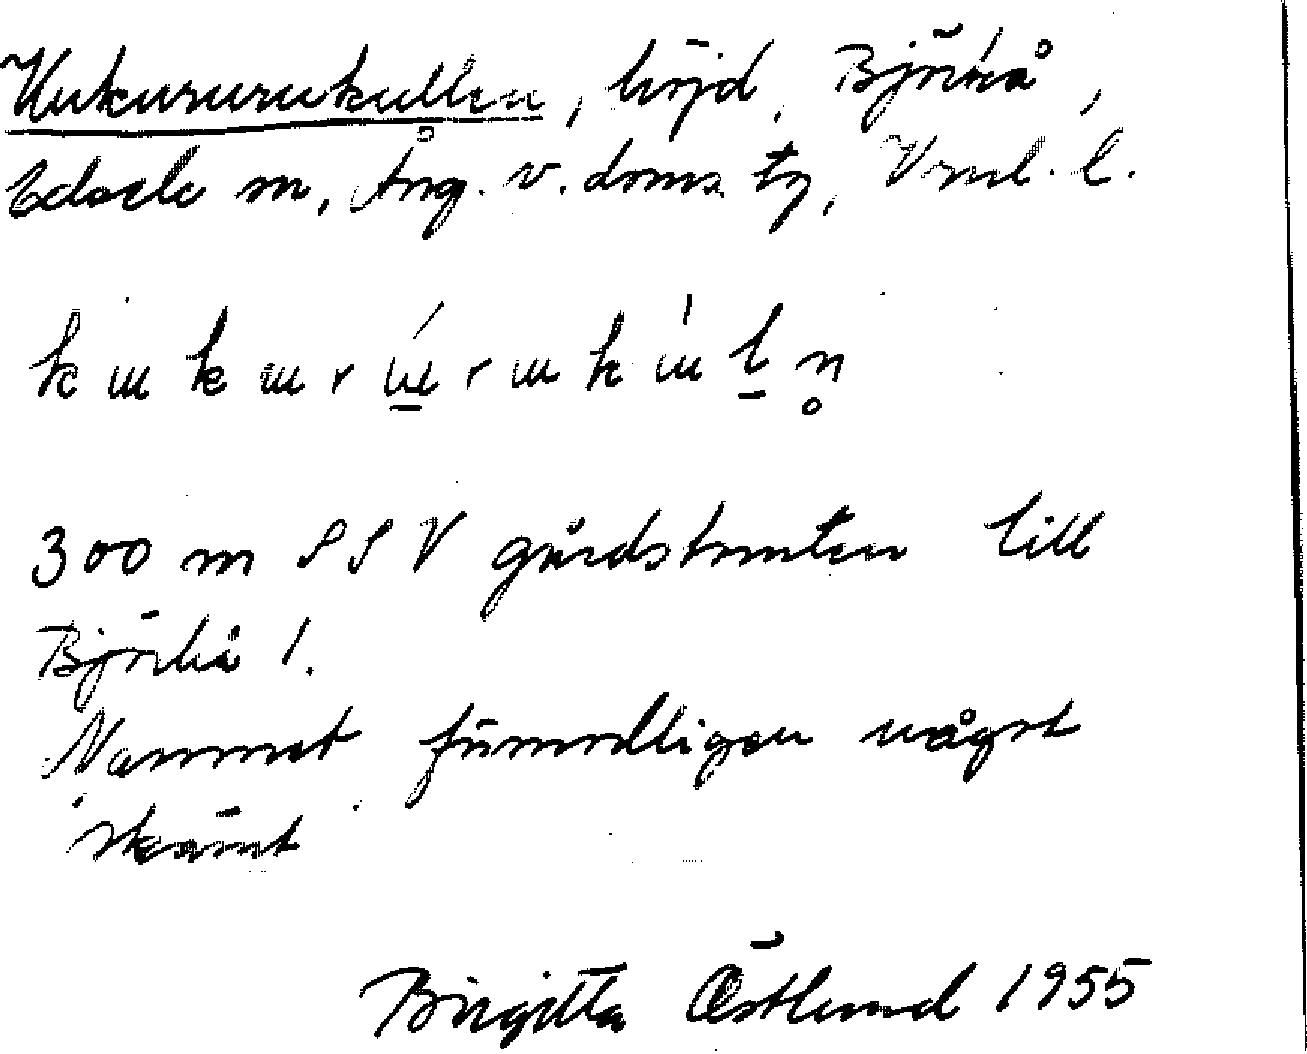 Kukururukullen, höjd, Björkå,
Edsele sn, Ång. v. doms. tg, Vnrl. l.
kukururukulln
300 m SSV gårdstomten till
Björkå 1.
Namnet förmodligen något
skämt
Birgitta Östlund 1955